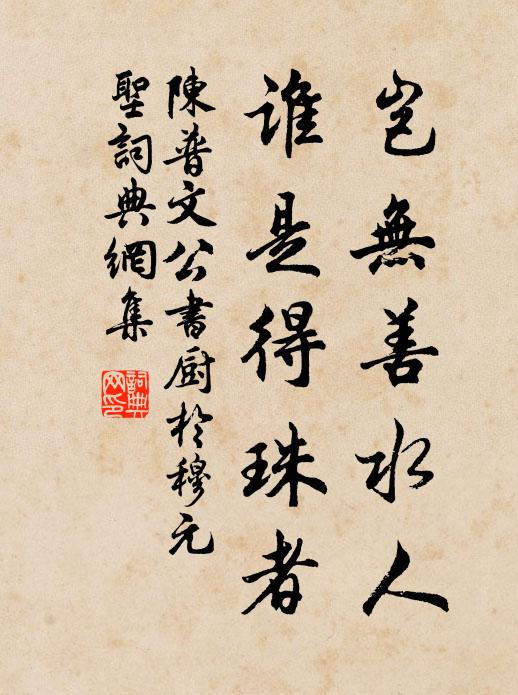 豈無善水人
誰是得珠者
陳普文公書厨於穆元
聖詞典網集
詞典
网印